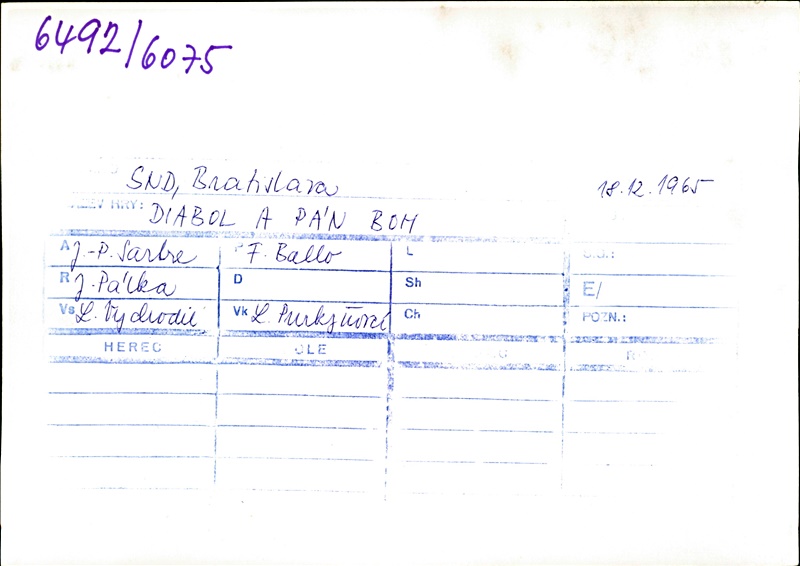 6492/6075
SND, Bratislava 18.12.1965
HRY: DIABOL A PÁN BOH
A J.-P. Sartre F. Ballo L
R J. Pálka D Sh E/
Vs L. Vychodil Vk L. Purkyňová Ch POZN.:
HEREC